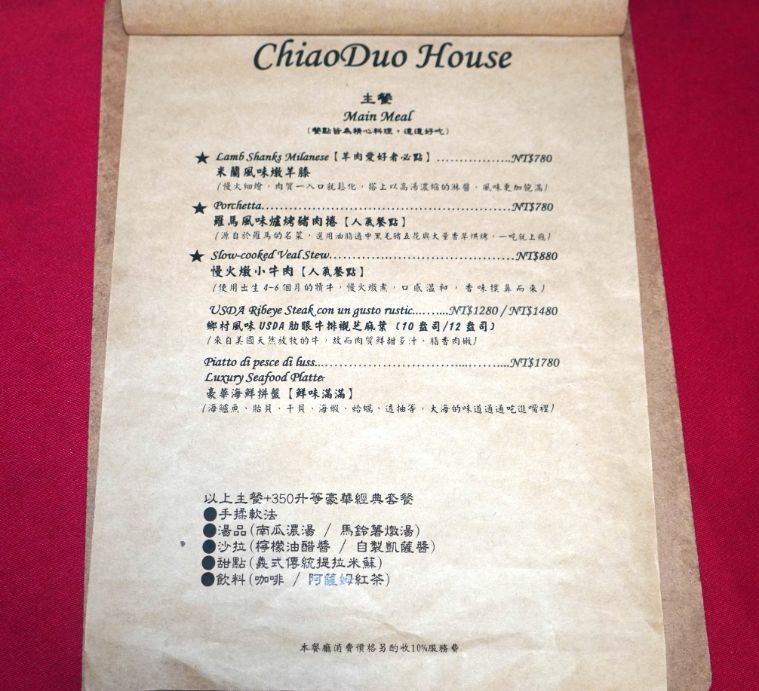 ChiaoDuo House
主餐
Main Meal
(餐點皆為精心料理,道道好吃)
★ Lamb Shanks Milanese【羊肉愛好者必點】.................NT$780
米蘭風味燉羊膝
(慢火細燴,肉質一入口就鬆化,搭上以高湯濃縮的淋醬,風味更加飽滿)
★ Porchetta..........................................................NT$780
羅馬風味爐烤豬肉捲【人氣餐點】
(源自於羅馬的名菜,選用油脂適中黑毛豬五花與大量香草烘烤,一吃就上癮)
★ Slow-cooked Veal Stew..........................................NT$880
慢火燉小牛肉【人氣餐點】
(使用出生4-6個月的犢牛,慢火燉煮,口感溫和,香味撲鼻而來)
USDA Ribeye Steak con un gusto rustic.........NT$1280 / NT$1480
鄉村風味USDA肋眼牛排襯芝麻葉(10盎司/12盎司)
(來自美國天然放牧的牛,故而肉質鮮甜多汁、脂香肉嫩)
Piatto di pesce di luss.............................................NT$1780
Luxury Seafood Platter
豪華海鮮拼盤【鮮味滿滿】
(海鱸魚、胎貝、干貝、海蝦、蛤蠣、透抽等,大海的味道通通吃進嘴裡)
以上主餐+350升等豪華經典套餐
●手揉軟法
●湯品(南瓜濃湯 / 馬鈴薯燉湯)
●沙拉(檸檬油醋醬 / 自製凱薩醬)
●甜點(義式傳統提拉米蘇)
●飲料(咖啡 / 阿薩姆紅茶)
本餐廳消費價格另酌收10%服務費